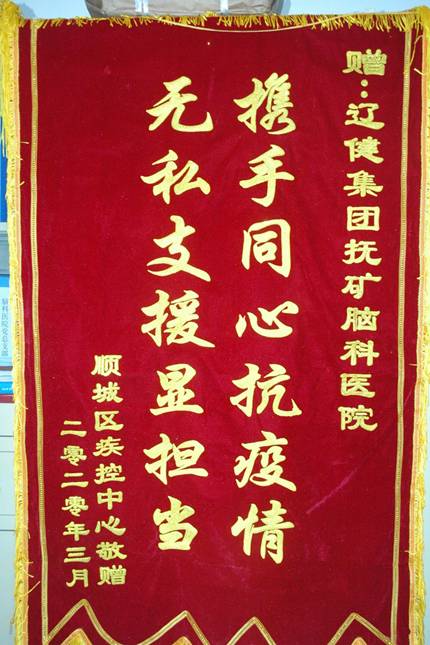 赠：辽健集团抚矿脑科医院
携手同心抗疫情
无私支援显担当
顺城区疾控中心敬赠
二零二零年三月
脑科医院党总支部